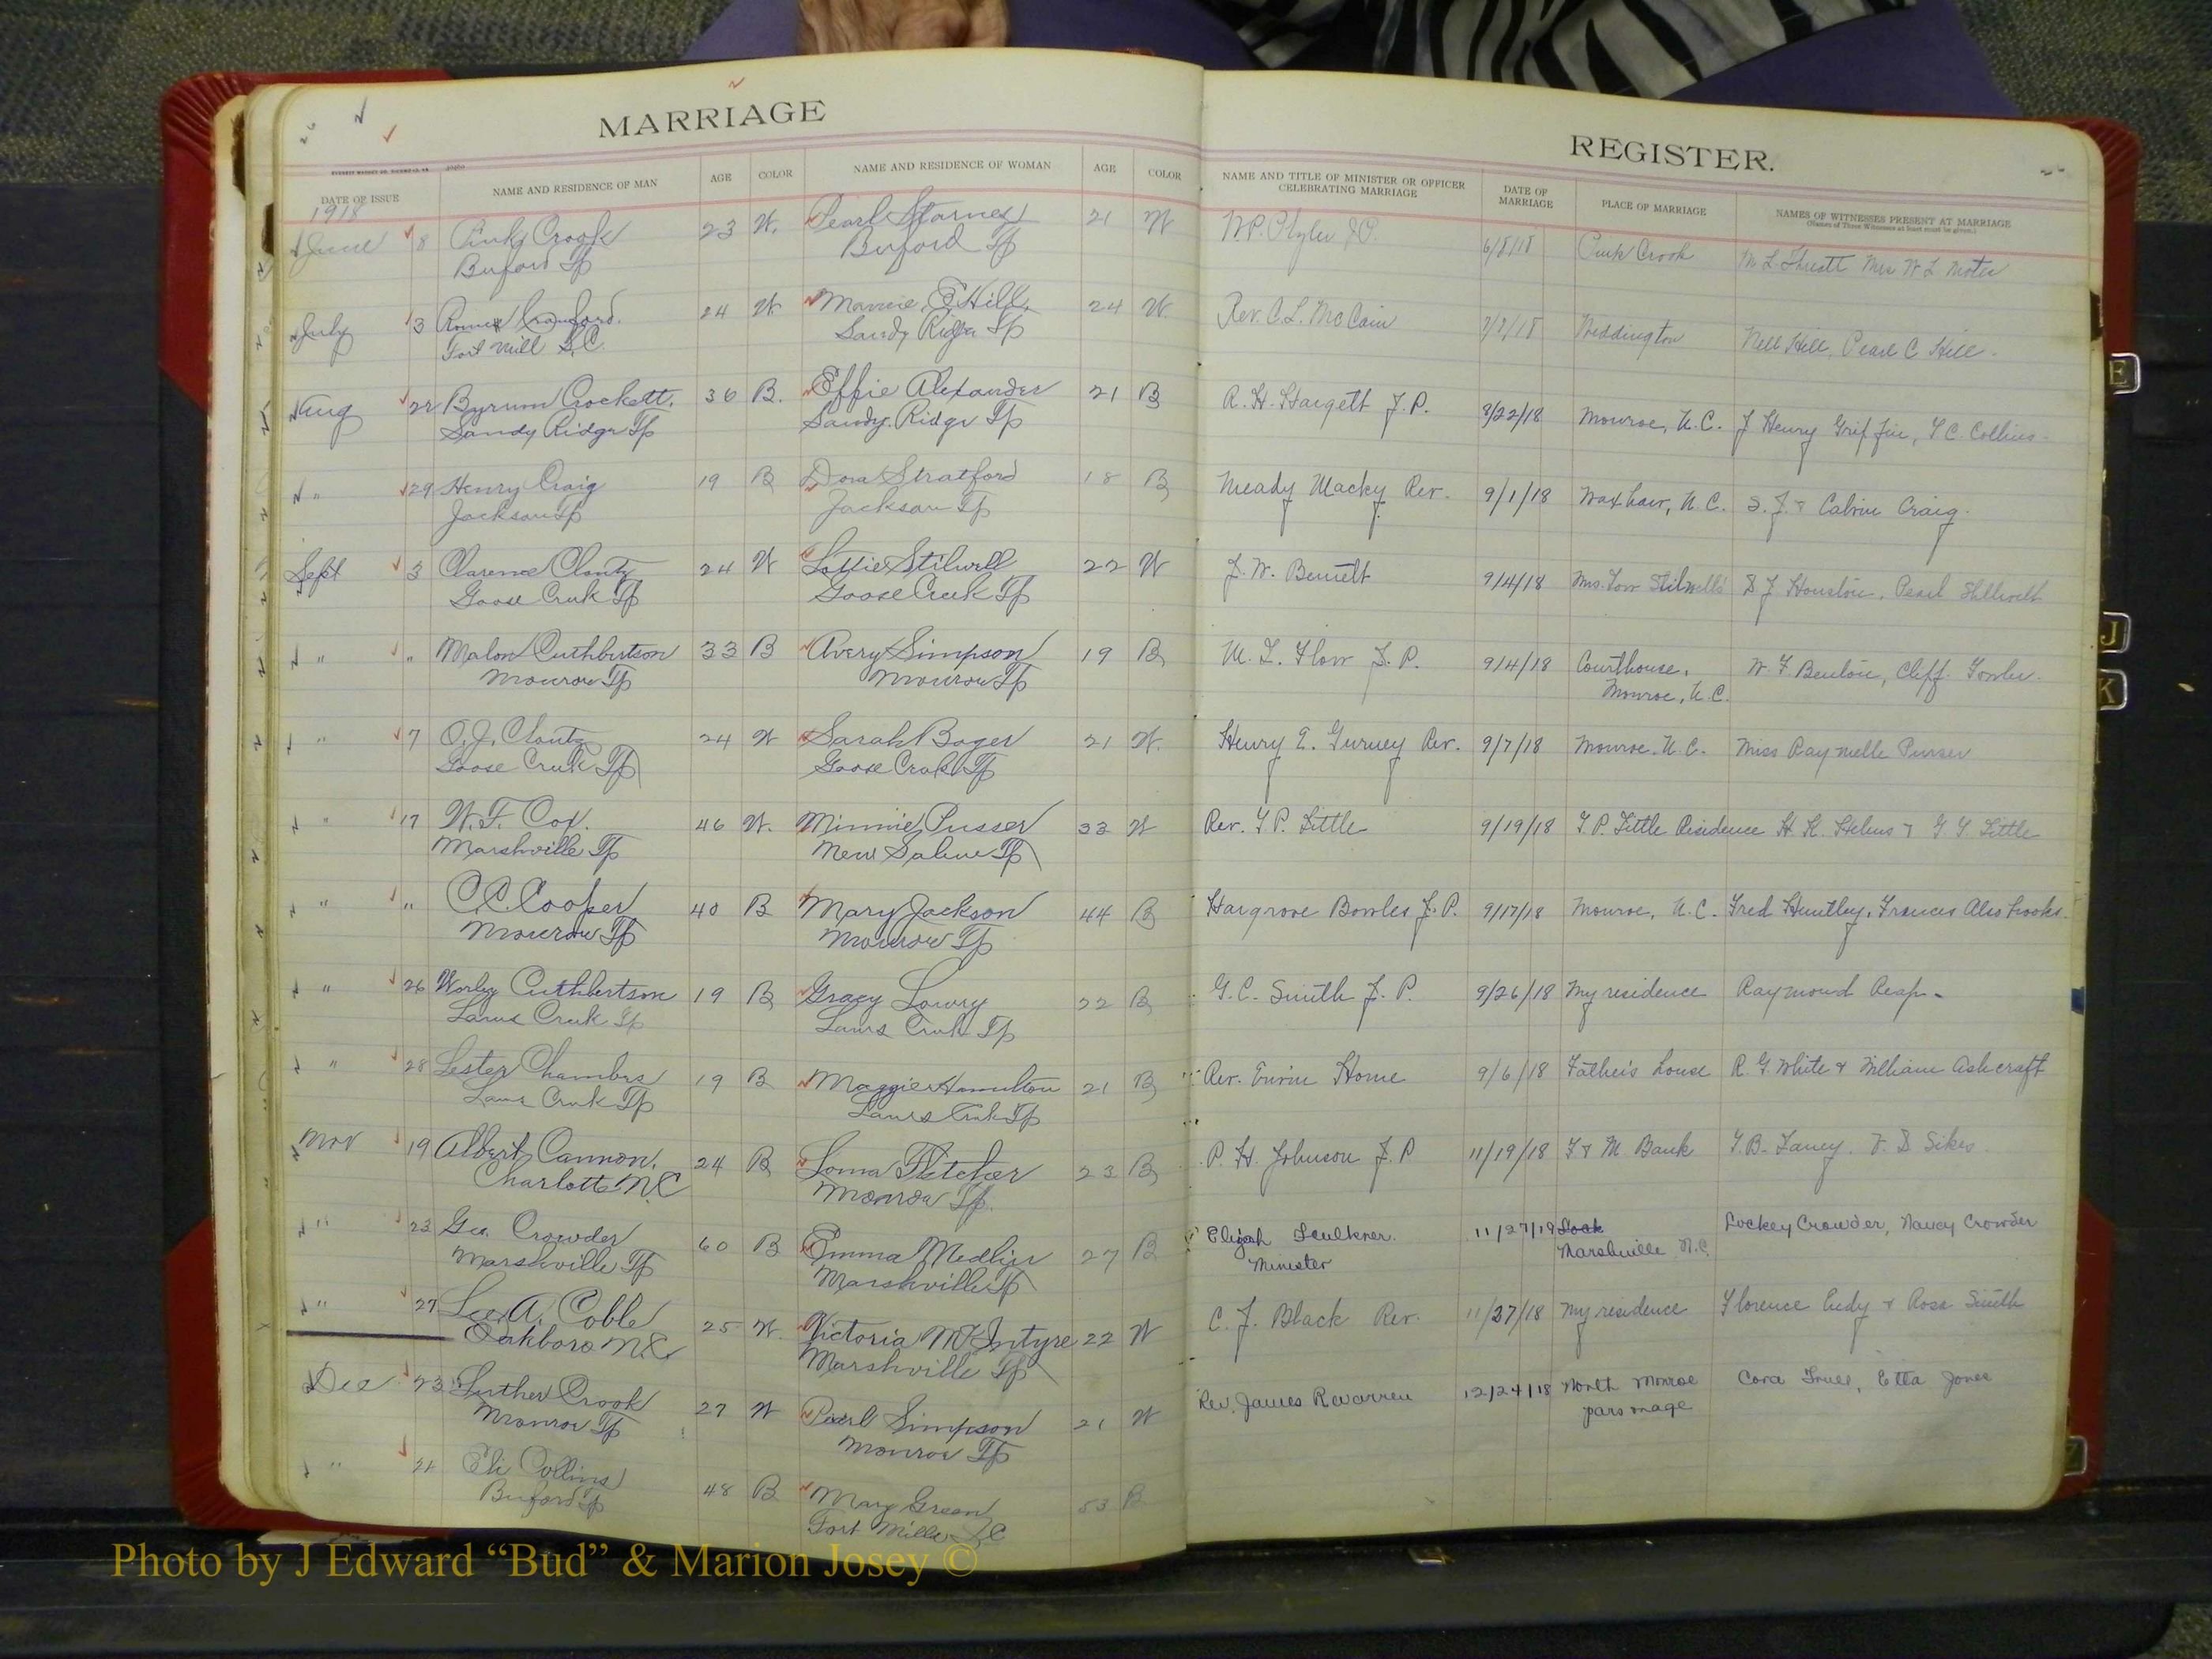 MARRIAGE
REGISTER.
DATE OF ISSUE
NAME AND RESIDENCE OF MAN
AGE
COLOR
NAME AND RESIDENCE OF WOMAN
AGE
COLOR
NAME AND TITLE OF MINISTER OR OFFICER
CELEBRATING MARRIAGE
DATE OF
MARRIAGE
PLACE OF MARRIAGE
NAMES OF WITNESSES PRESENT AT MARRIAGE
(Names of Three Witnesses at least must be given.)
1918
June 8 Pink Crook 23 W. Pearl Starnes 21 W W.P. Plyler J.P. 6/8/18 Pink Crook M L Threatt Mrs W L
Buford Tp Buford Tp
July 3 Crawford. 24 W E Hill, 24 W Rev. C.L. McCain 7/7/18 Weddington Nell Hill, Pearl C Hill.
Fort Mill S.C. Sandy Ridge Tp
Aug 22 Byrum Crockett. 36 B. Effie Alexander 21 B R. H. Hargett J.P. 8/22/18 Monroe, N.C. J Henry Griffin, T.C. Collins
Sandy Ridge Tp Sandy Ridge Tp
" 29 Henry Craig 19 B Dora Stratford 18 B Meady Macky Rev. 9/1/18 Waxhaw, N.C. S. J. & Calvin Craig.
Jackson Tp Jackson Tp
Sept 3 Clarence Clontz 24 W Lottie Stilwell 22 W J. W. Bennett 9/4/18 Mrs. Tom Stilwells Houston, Pearl Stillwell
Goose Creek Tp Goose Creek Tp
" " Malon Cuthbertson 33 B Avery Simpson 19 B M. L. Flow J. P. 9/4/18 Courthouse, W. F. Benton, Cliff. Fowler.
Monroe Tp Monroe Tp Monroe, N.C.
" 7 O.J. Clontz 24 W Sarah Boger 21 W. Henry E. Gurney Rev. 9/7/18 Monroe. N.C. Miss Raymelle Purser
Goose Creek Tp Goose Creek Tp
" 17 W.F. Cox. 46 W. Minnie Pusser 33 W Rev. T P. Little 9/19/18 T.P. Little Residence H. K. Helms & Little
Marshville Tp New Salem Tp
" " C.C. Cooper 40 B Mary Jackson 44 B Hargrove Bowles J.P. 9/17/18 Monroe, N.C. Fred Huntley, Frances Alsobrooks.
Monroe Tp Monroe Tp
" 26 Worley Cuthbertson 19 B Gracy Lowry 22 B G.C. Smith J. P. 9/26/18 My residence Raymond Reap.
Lanes Creek Tp Lanes Creek Tp
" 28 Lester Chambers 19 B Maggie Hamilton 21 B Rev. Horne 9/6/18 Father's house R. G. White & William Ashcraft
Lanes Creek Tp Lanes Creek Tp
Nov 19 Albert Cannon. 24 B Loma Fletcher 23 B P. H. Johnson J.P 11/19/18 F & M. Bank T.B. Laney. Sikes
Charlotte N.C Monroe Tp.
" 23 Geo. Crowder 60 B Emma Medlin 27 B Elizah Faulkner. 11/27/19 Lockey Crowder, Nancy Crowder
Marshville Tp Marshville Tp Minister Marshville N.C.
" 27 Lee A. Coble 25 W. Victoria McIntyre 22 W C. J. Black Rev. 11/27/18 My residence Florence Eudy & Rosa Smith
Oakboro N.C. Marshville Tp
Dec 23 Luther Crook 27 W Pearl Simpson 21 W Rev. James 12/24/18 North Monroe Cora , Etta Jones
Monroe Tp Monroe Tp parsonage
" 24 Eli Collins 48 B Mary Green 53 B
Buford Tp Fort Mill S.C
E
J
K
Photo by J Edward “Bud” & Marion Josey ©